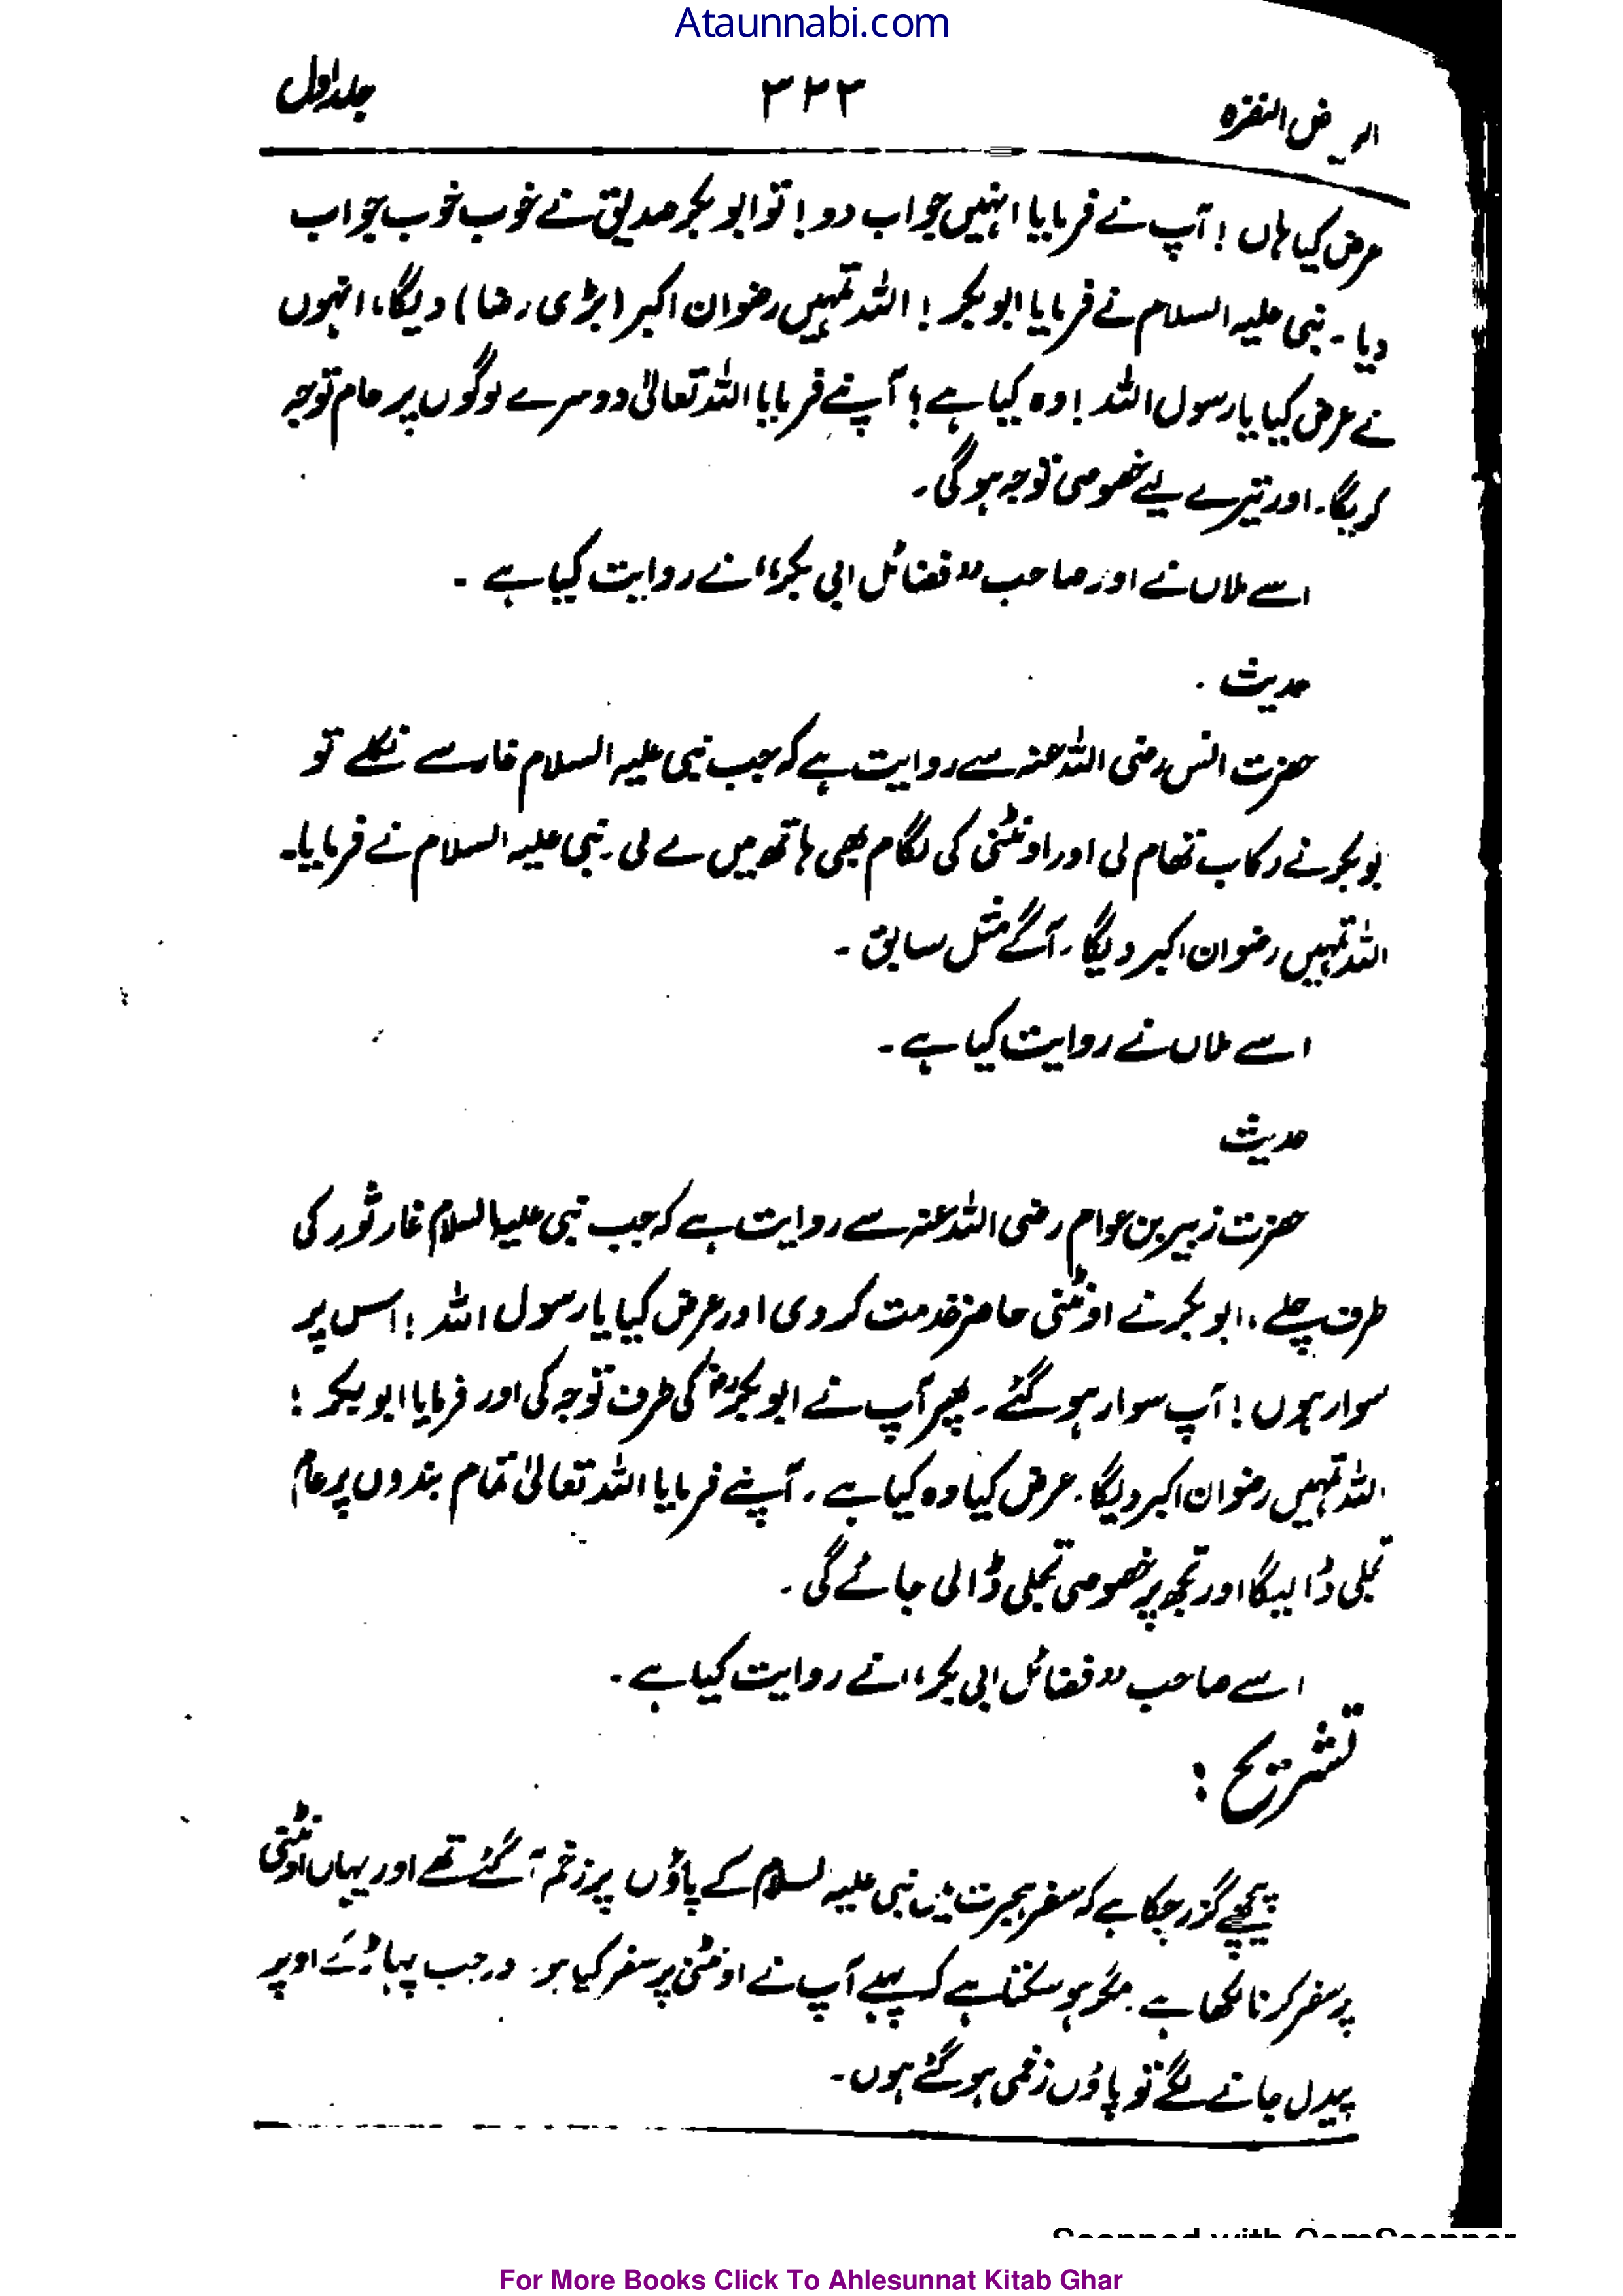 Ataunnabi.com
الریاض النضرہ ۳۲۳ جلد اول
عرض کیا ہاں! آپ نے فرمایا انہیں جواب دو! تو ابو بکر صدیق نے خوب خوب جواب
دیا۔ نبی علیہ السلام نے فرمایا ابو بکر! اللہ تمہیں رضوان اکبر (بڑی رضا) دیگا، انہوں
نے عرض کیا یا رسول اللہ! وہ کیا ہے؟ آپنے فرمایا اللہ تعالیٰ دوسرے لوگوں پر عام توجہ
کریگا۔ اور تیرے لیے خصوصی توجہ ہوگی۔
اسے ملاں نے اور صاحب ”فضائل ابی بکر“ نے روایت کیا ہے۔
حدیث
حضرت انس رضی اللہ عنہ سے روایت ہے کہ جب نبی علیہ السلام غار سے نکلے تو
بوبکر نے رکاب تھام لی اور اونٹنی کی لگام بھی ہاتھ میں لے لی۔ نبی علیہ السلام نے فرمایا۔
اللہ تمہیں رضوان اکبر دیگا۔ آگے مثل سابق۔
اسے ملاں نے روایت کیا ہے۔
حدیث
حضرت زبیر بن عوام رضی اللہ عنہ سے روایت ہے کہ جب نبی علیہ السلام غار ثور کی
طرف چلے، ابو بکر نے اونٹنی حاضر خدمت کر دی اور عرض کیا یا رسول اللہ! اس پر
سوار ہوں! آپ سوار ہو گئے۔ پھر آپ نے ابو بکرؓ کی طرف توجہ کی اور فرمایا ابو بکر!
اللہ تمہیں رضوان اکبر دیگا۔ عرض کیا وہ کیا ہے۔ آپنے فرمایا اللہ تعالیٰ تمام بندوں پر عام
تجلی ڈالیگا اور تجھ پر خصوصی تجلی ڈالی جائے گی۔
اسے صاحب ”فضائل ابی بکر“ نے روایت کیا ہے۔
تشریح:
پیچھے گزر چکا ہے کہ سفر ہجرت میں نبی علیہ السلام کے پاؤں پر زخم آ گئے تھے اور یہاں اونٹنی
پر سفر کرنا لکھا ہے۔ مگر ہو سکتا ہے کہ پہلے آپ نے اونٹنی پر سفر کیا ہو۔ درجب پہاڑ کے اوپر
پیدل جانے لگے تو پاؤں زخمی ہو گئے ہوں۔
Scanned with CamScanner
For More Books Click To Ahlesunnat Kitab Ghar